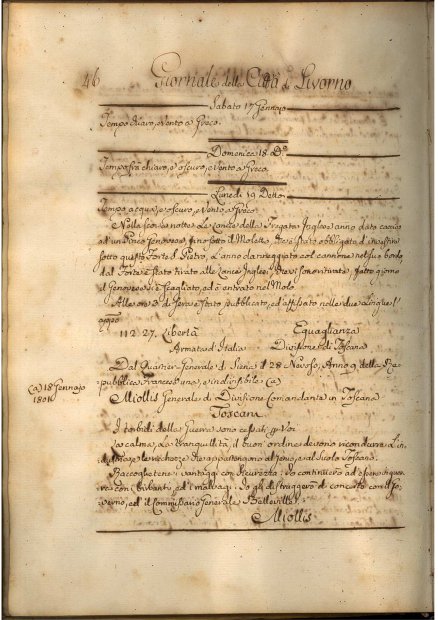 46 Giornale della Città di Livorno
Sabato 17 Gennajo
Tempo chiaro, e Vento a Greco.
Domenica 18 Do.
Tempo frà chiaro, e oscuro, e Vento a Greco.
Lunedì 19 Detto
Tempo acqua, e oscuro, e Vento a Greco.
Nella scorsa notte le Lancie della Fregata Inglese anno data caccia
ad un Pinco Genovese, fino sotto il Moletto, ed è stato obbligato d'investire
sotto questo Forte S. Pietro. L'anno danneggiato col cannone nel suo bordo,
dal Forte è stato tirato alle Lancie Inglesi, si sono ritirate, fatto giorno
il Genovese si è scagliato, ed è entrato nel Molo.
Alle ore di sera è stato pubblicato, ed affissato nelle due Lingue l'
appo
N 2. 27. Libertà Eguaglianza
Armata d'Italia Divisione di Toscana
Dal Quartier Generale di Siena il 28 Nevoso, Anno 9 della Re-
pubblica Francese una, e indivisibile (a)
(a) 18 Gennajo
1801
Miollis Generale di Divisione Comandante in Toscana
Toscani
I torbidi della Guerra sono cessati per Voi.
La calma, la tranquillità, il buon'ordine devono ricondurre l'in-
dustria, e le ricchezze che appartengono al Genio, e al Suolo Toscano.
Raccoglietene i vantaggi con sicurezza. Io continuerò ad essere in guer-
ra con i birbanti, ed i malvagi. Io gli distruggerò di concerto con il Go-
verno, ed il Commissario Generale Belleville.
Miollis